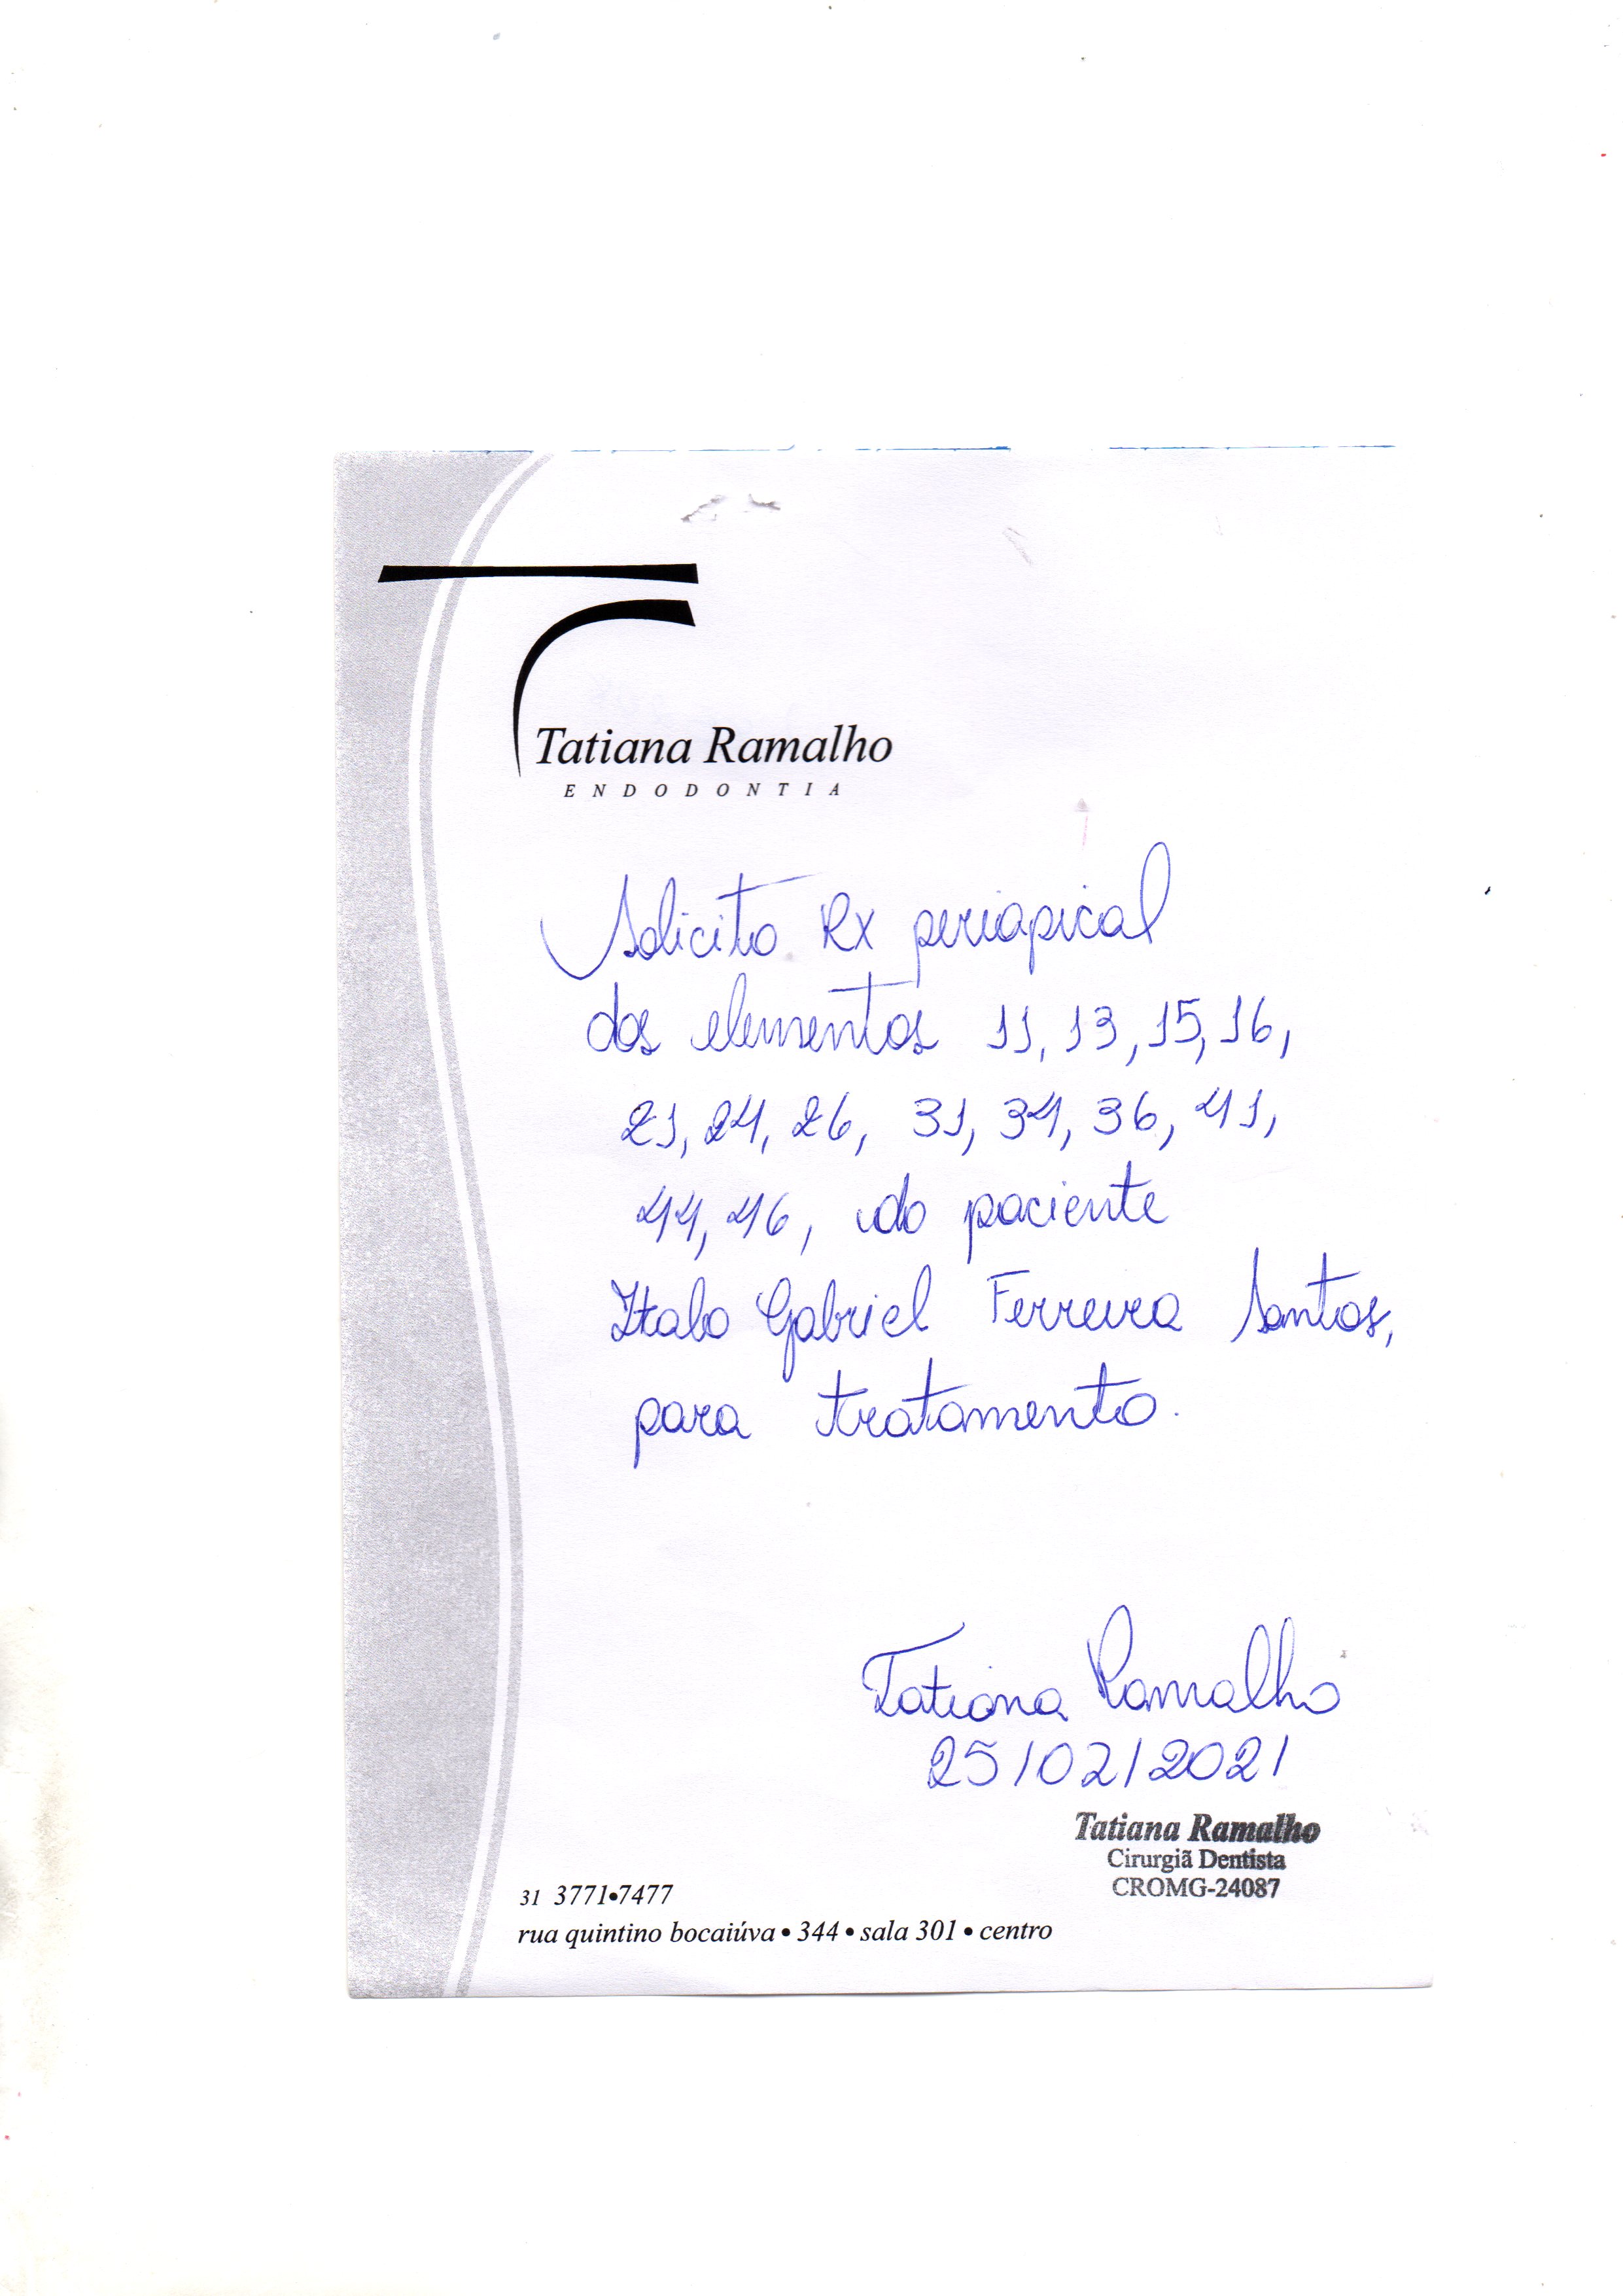 Tatiana Ramalho
ENDODONTIA
Solicito Rx periapical
dos elementos 11, 13, 15, 16,
21, 24, 26, 31, 34, 36, 41,
44, 46, do paciente
Italo Gabriel Ferreira Santos,
para tratamento.
Tatiana Ramalho
25/02/2021
Tatiana Ramalho
Cirurgiã Dentista
CROMG-24087
31 3771•7477
rua quintino bocaiúva • 344 • sala 301 • centro